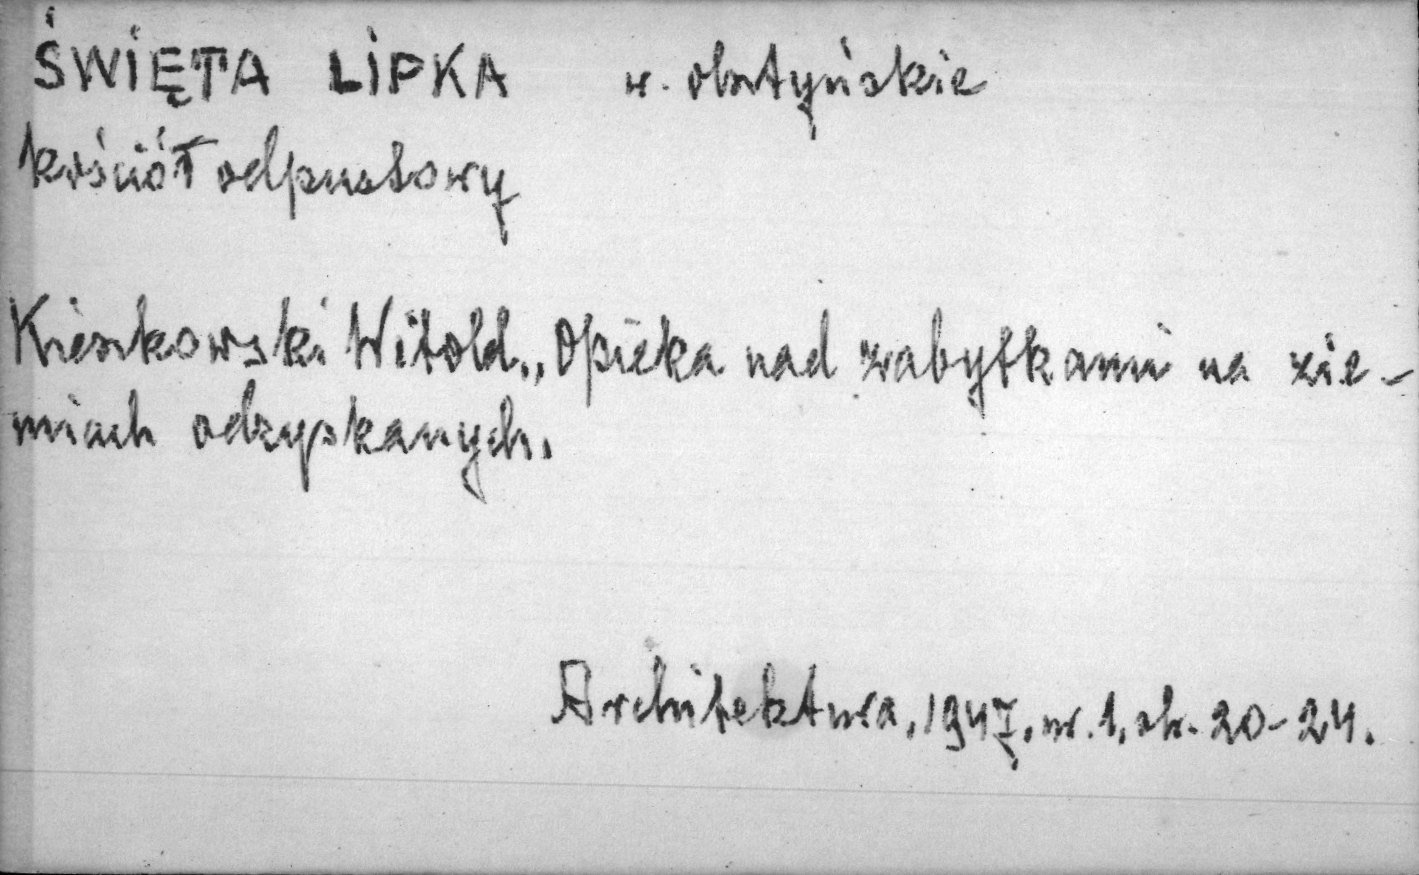 ŚWIĘTA LIPKA w. olsztyńskie
kościół odpustowy
Kieszkowski Witold., Opieka nad zabytkami na zie-
miach odzyskanych.
Architektura, 1947, nr. 1, str. 20-24.